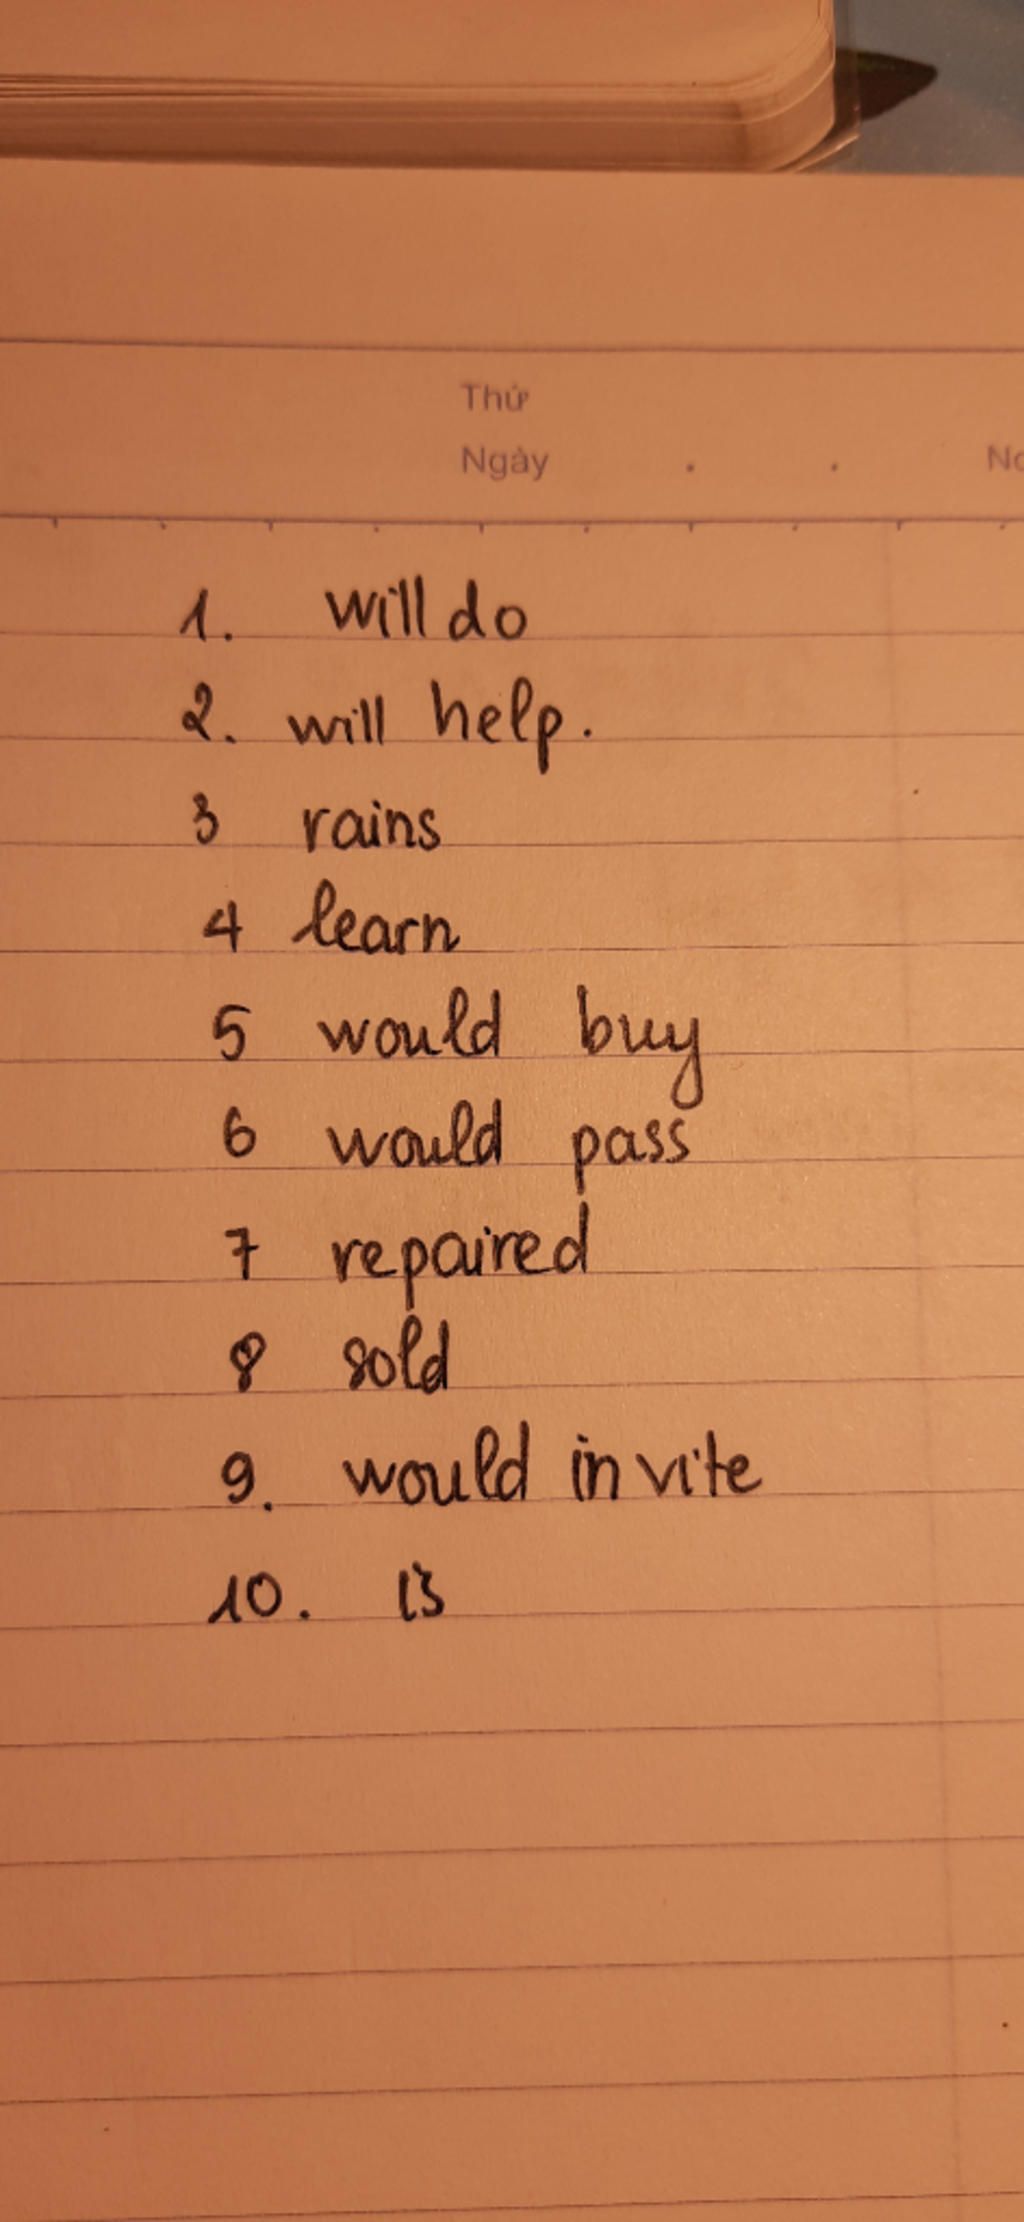 Thứ
Ngày . .
1. will do
2. will help.
3 rains
4 learn
5 would buy
6 would pass
7 repaired
8 sold
9. would invite
10. is